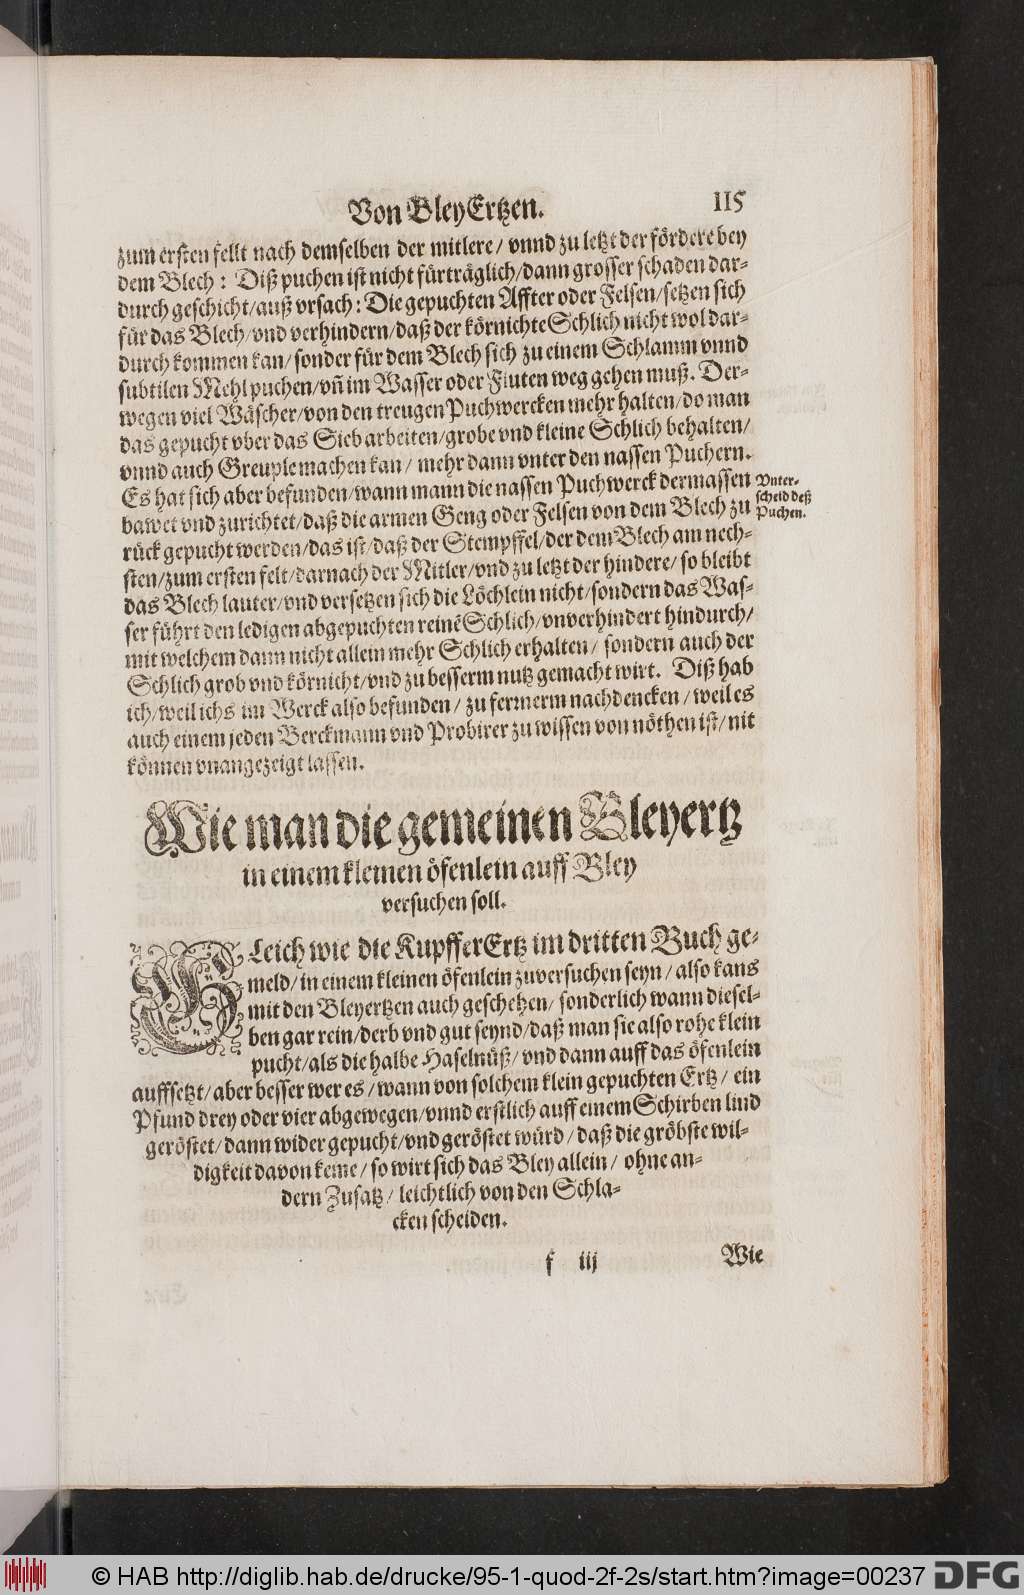 Von BleyErtzen. 115
zum ersten fellt nach demselben der mitlere/ vnnd zu letzt der fördere bey
dem Blech: Diß puchen ist nicht fürträglich/dann grosser schaden dar-
durch geschicht/auß vrsach: Die gepuchten Affter oder Felsen/setzen sich
für das Blech/vnd verhindern/daß der körnichte Schlich nicht wol dar-
durch kommen kan/ sonder für dem Blech sich zu einem Schlamm vnnd
subtilen Mehl puchen/vñ im Wasser oder Fluten weg gehen muß. Der-
wegen viel Wäscher/von den treugen Puchwercken mehr halten/do man
das gepucht vber das Sieb arbeiten/grobe vnd kleine Schlich behalten/
vnnd auch Greuple machen kan/ mehr dann vnter den nassen Puchern.
Es hat sich aber befunden/wann mann die nassen Puchwerck dermassen
bawet vnd zurichtet/daß die armen Geng oder Felsen von dem Blech zu
rück gepucht werden/das ist/daß der Stempffel/der dem Blech am nech-
sten/zum ersten felt/darnach der Mitler/vnd zu letzt der hindere/ so bleibt
das Blech lauter/vnd versetzen sich die Löchlein nicht/sondern das Was-
ser führt den ledigen abgepuchten reinē Schlich/vnverhindert hindurch/
mit welchem dann nicht allein mehr Schlich erhalten/ sondern auch der
Schlich grob vnd körnicht/vnd zu besserm nutz gemacht wirt. Diß hab
ich/weil ichs im Werck also befunden/ zu fernerm nachdencken/ weil es
auch einem jeden Berckmann vnd Probirer zu wissen von nöthen ist/nit
können vnangezeigt lassen.
Vnter-
scheid deß
Puchen.
Wie man die gemeinen Bleyertz
in einem kleinen öfenlein auff Bley
versuchen soll.
GLeich wie die KupfferErtz im dritten Buch ge-
meld/in einem kleinen öfenlein zuversuchen seyn/also kans
mit den Bleyertzen auch geschehen/ sonderlich wann diesel-
ben gar rein/derb vnd gut seynd/daß man sie also rohe klein
pucht/als die halbe Haselnüß/ vnd dann auff das öfenlein
auffsetzt/aber besser wer es/wann von solchem klein gepuchten Ertz/ ein
Pfund drey oder vier abgewegen/vnnd erstlich auff einem Schirben lind
geröstet/dann wider gepucht/vnd geröstet würd/daß die gröbste wil-
digkeit davon keme/ so wirt sich das Bley allein/ ohne an-
dern Zusatz/ leichtlich von den Schla-
cken scheiden.
f iij Wie
© HAB http://diglib.hab.de/drucke/95-1-quod-2f-2s/start.htm?image=00237 DFG